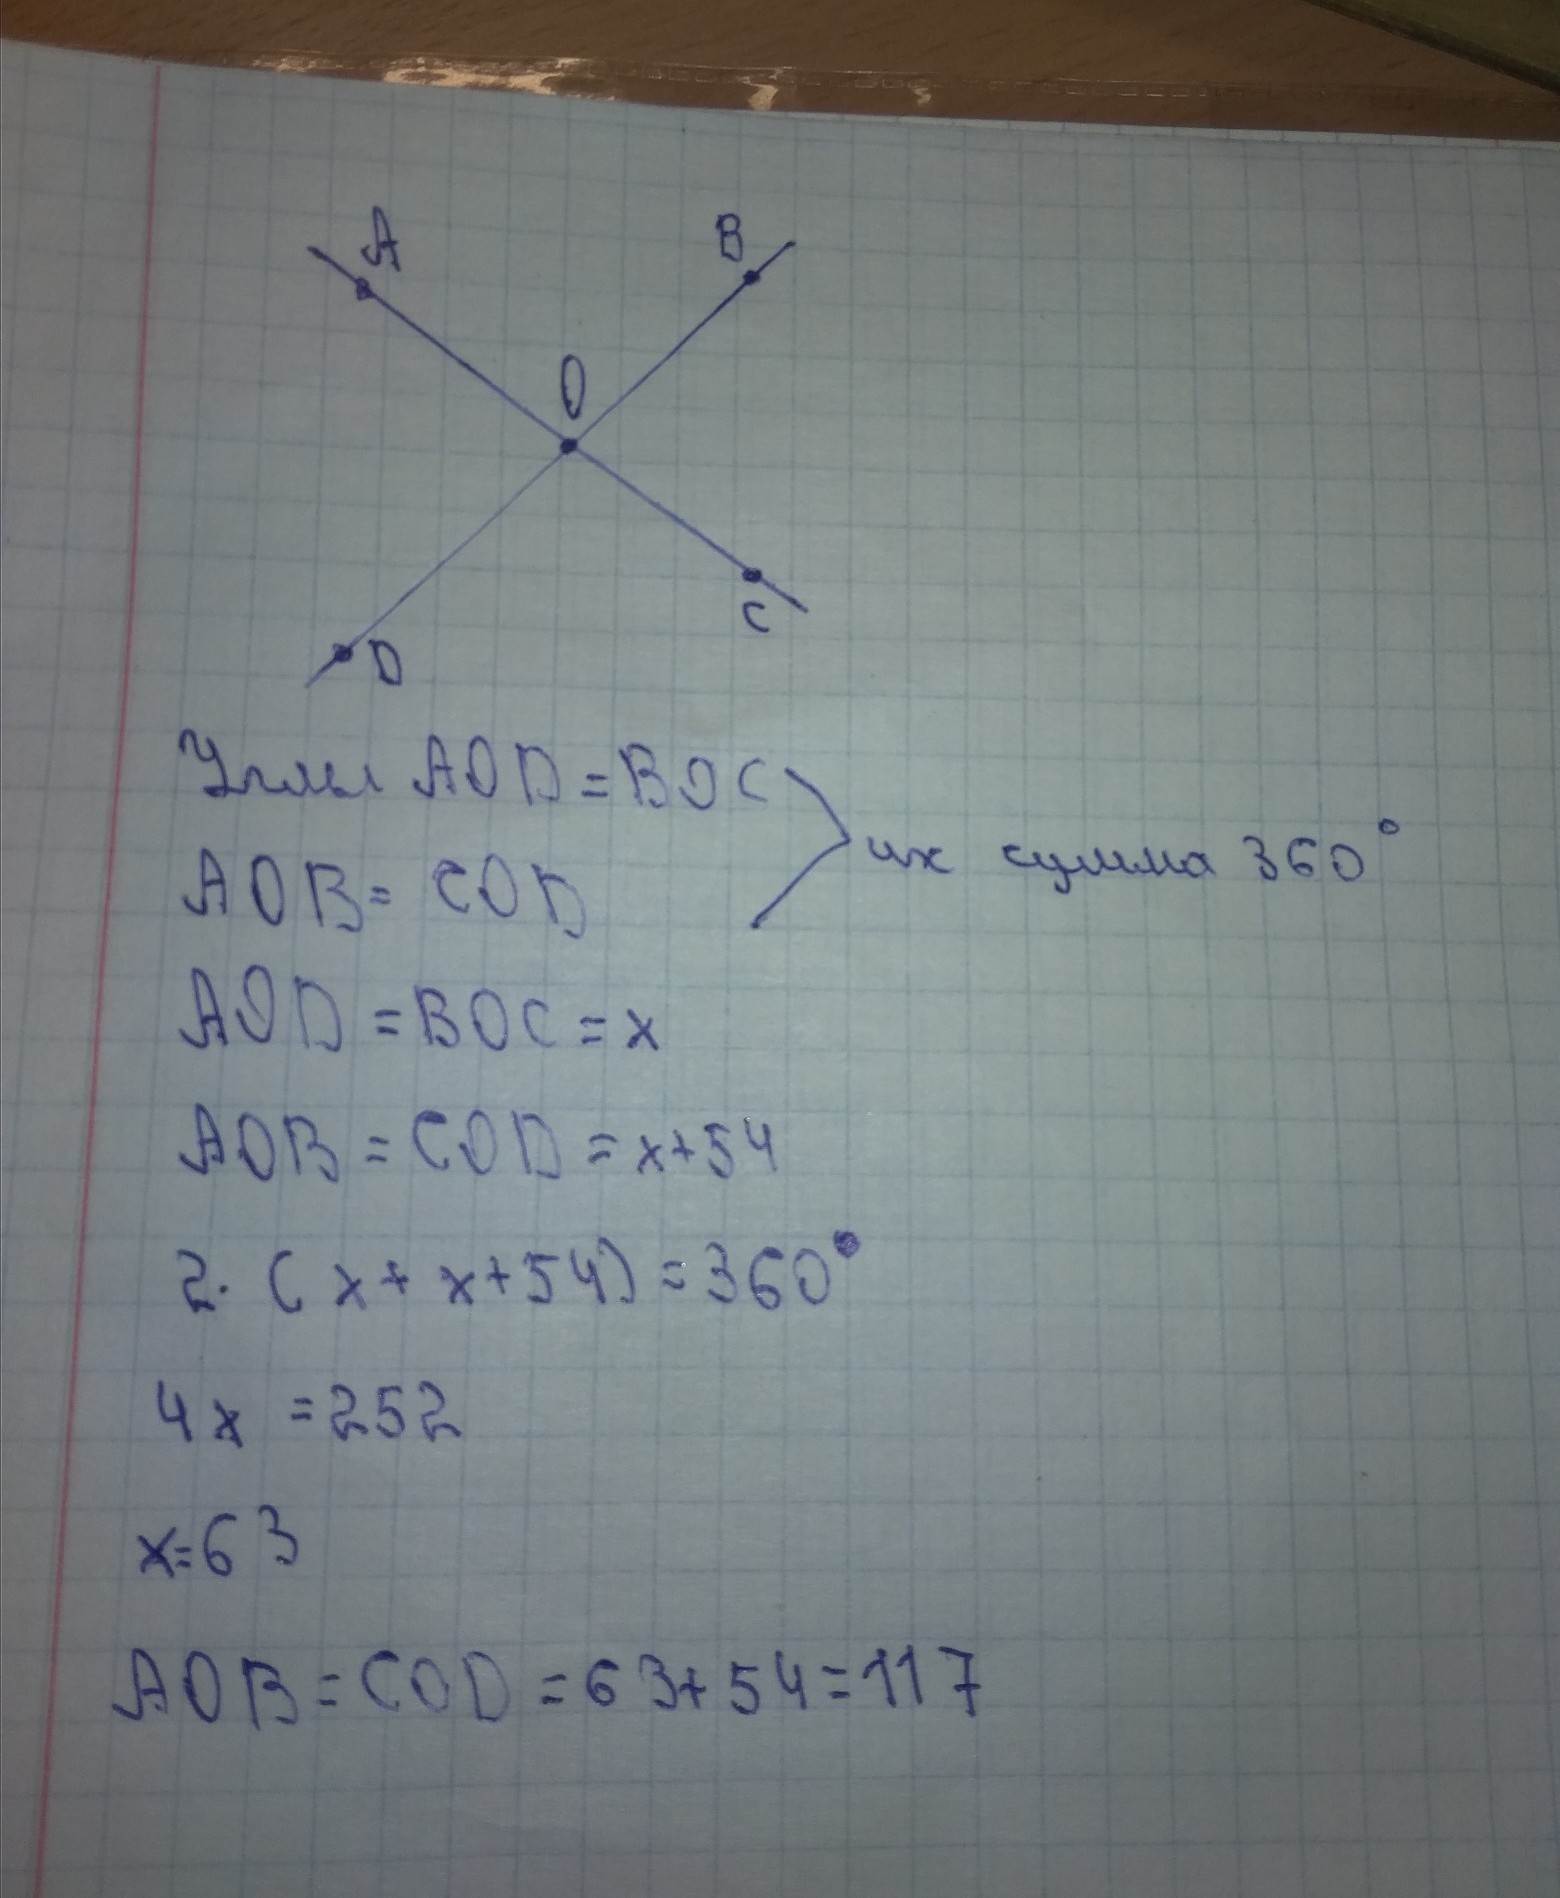 A
B
O
C
D
Углы AOD = BOC
их сумма 360°
AOB = COD
AOD = BOC = x
AOB = COD = x+54
2. (x + x+54) = 360°
4x = 252
x=63
AOB = COD = 63+54=117